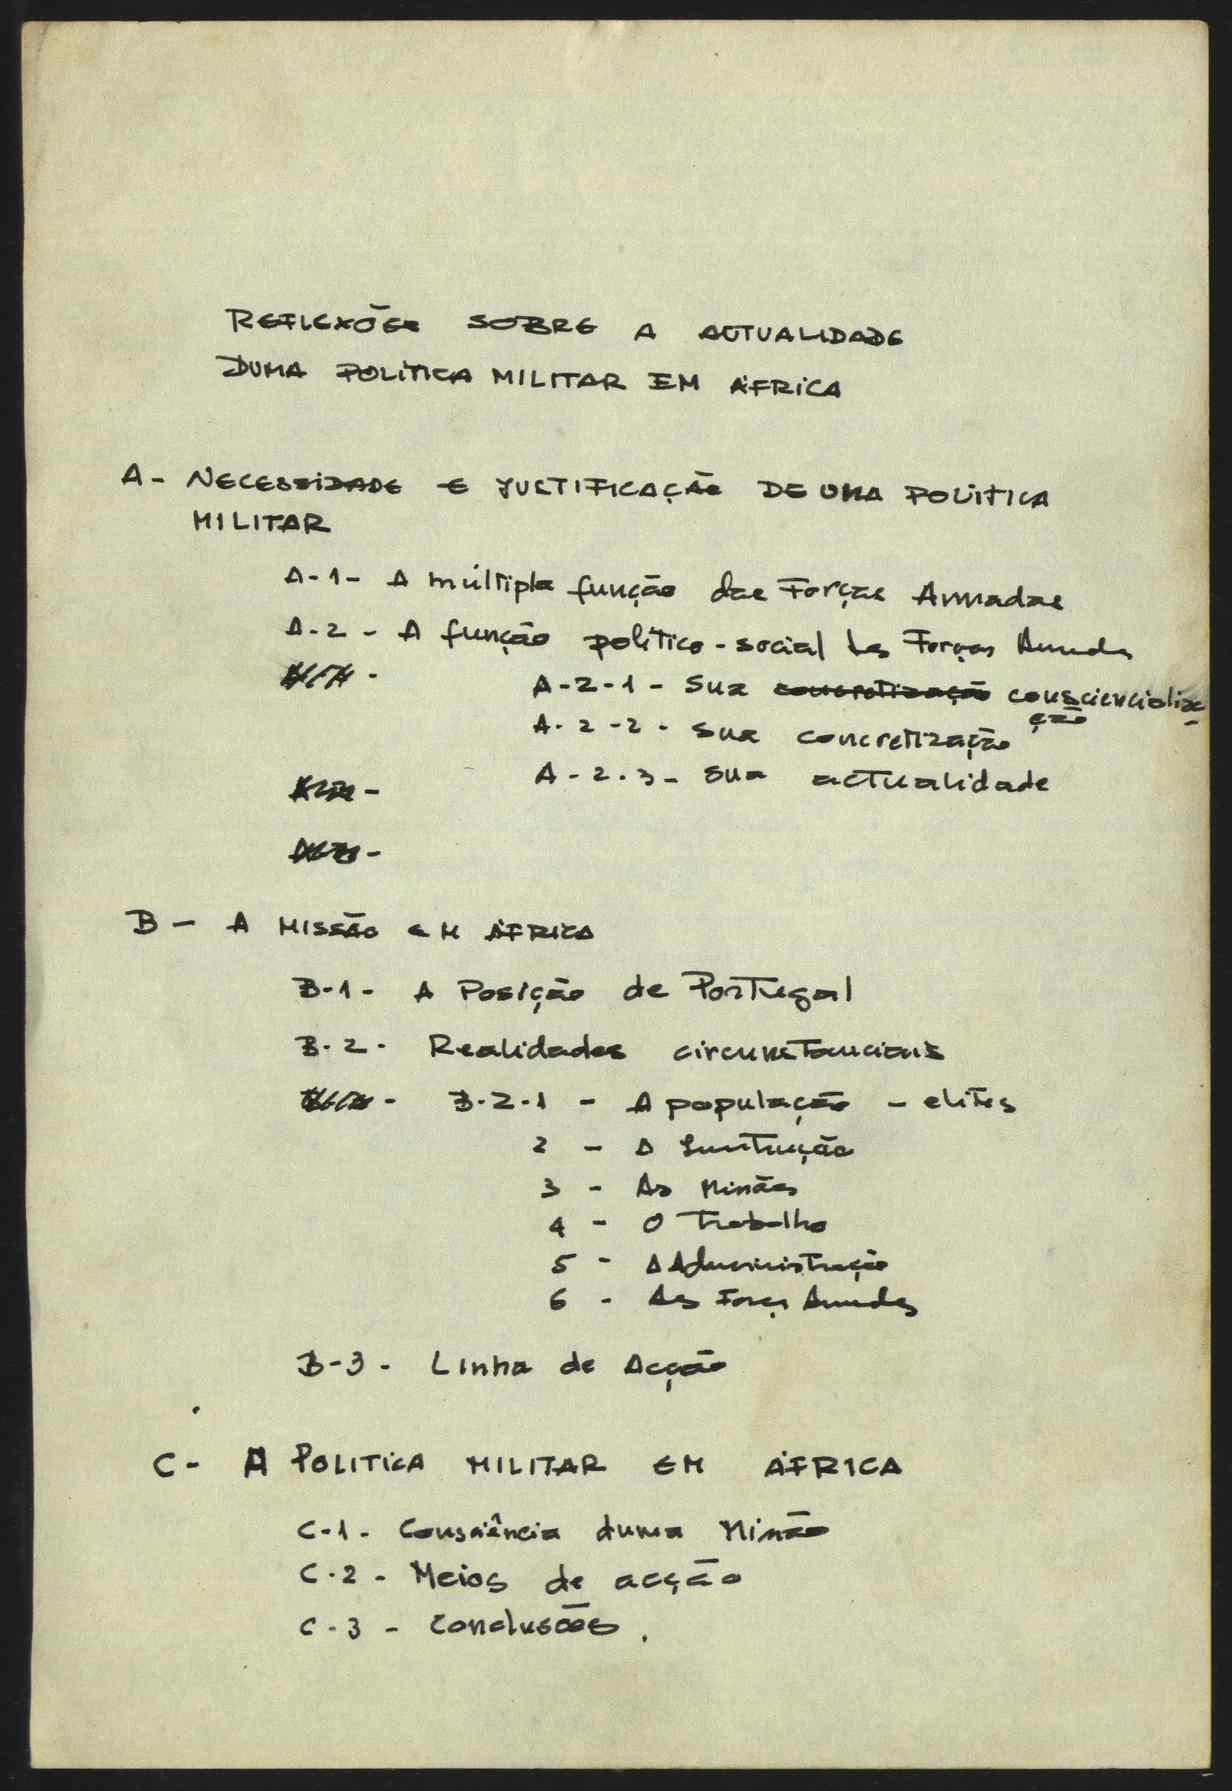 REFLEXÕES SOBRE A ACTUALIDADE
DUMA POLÍTICA MILITAR EM ÁFRICA
A - NECESSIDADE E JUSTIFICAÇÃO DE UMA POLÍTICA
MILITAR
A-1- A múltipla função das Forças Armadas
A-2 - A função político-social das Forças Armadas
A-2-1 - Sua concretização consciencializa
ção
A-2-2 - Sua concretização
A-2-3 - Sua actualidade
B - A MISSÃO EM ÁFRICA
B-1- A Posição de Portugal
B-2- Realidades circunstanciais
B-2-1 - A população - elites
2 - A Instrução
3 - As Missões
4 - O Trabalho
5 - A Administração
6 - As Forças Armadas
B-3- Linha de Acção
C- A POLÍTICA MILITAR EM ÁFRICA
C-1- Consciência duma Missão
C-2 - Meios de acção
C-3 - Conclusões.